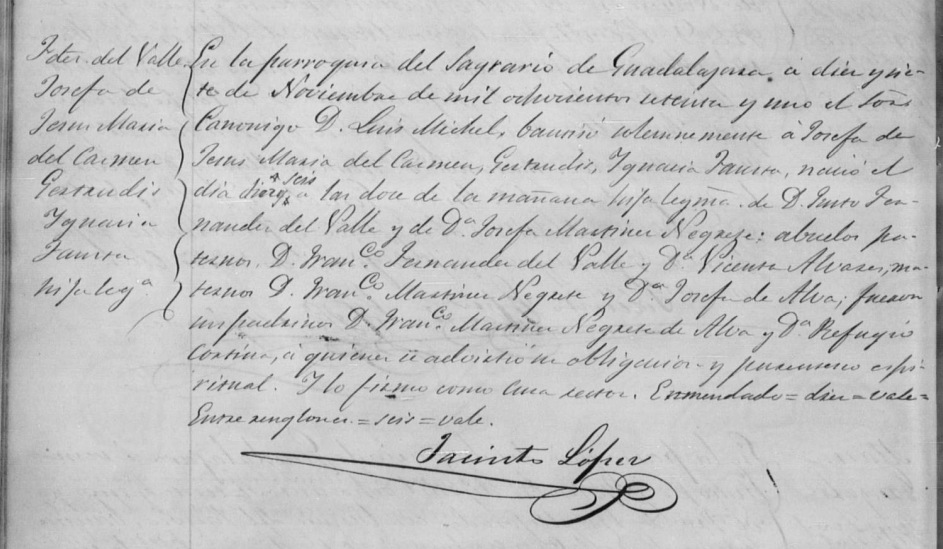 Fdes. del Valle
Josefa de
Jesus Maria
del Carmen
Gertrudis
Ygnacia
Fausta
hija legª
En la parroquia del Sagrario de Guadalajara, a diez y sie-
te de Noviembre de mil ochocientos setenta y uno el Sor
Canonigo D. Luis Michel, bautisó solemnemente á Josefa de
Jesus Maria del Carmen, Gertrudis, Ygnacia Fausta, nació el
dia diez y seis a las doce de la mañana hija legma. de D. Justo Fer-
nandez del Valle y de Dª Josefa Martinez Negrete; abuelos pa-
ternos D. Franco. Fernandez del Valle y Dª Vicenta Alvarez, ma-
ternos D. Franco. Martinez Negrete y Dª Josefa de Alva; fueron
sus padrinos D. Franco. Martinez Negrete de Alva y Dª Refugio
Cortina, á quienes se advirtió su obligacion y parentesco espi-
ritual. Y lo firmo como Cura rector. Enmendado = diez = vale =
Entre renglones = seis = vale.
Jacinto López